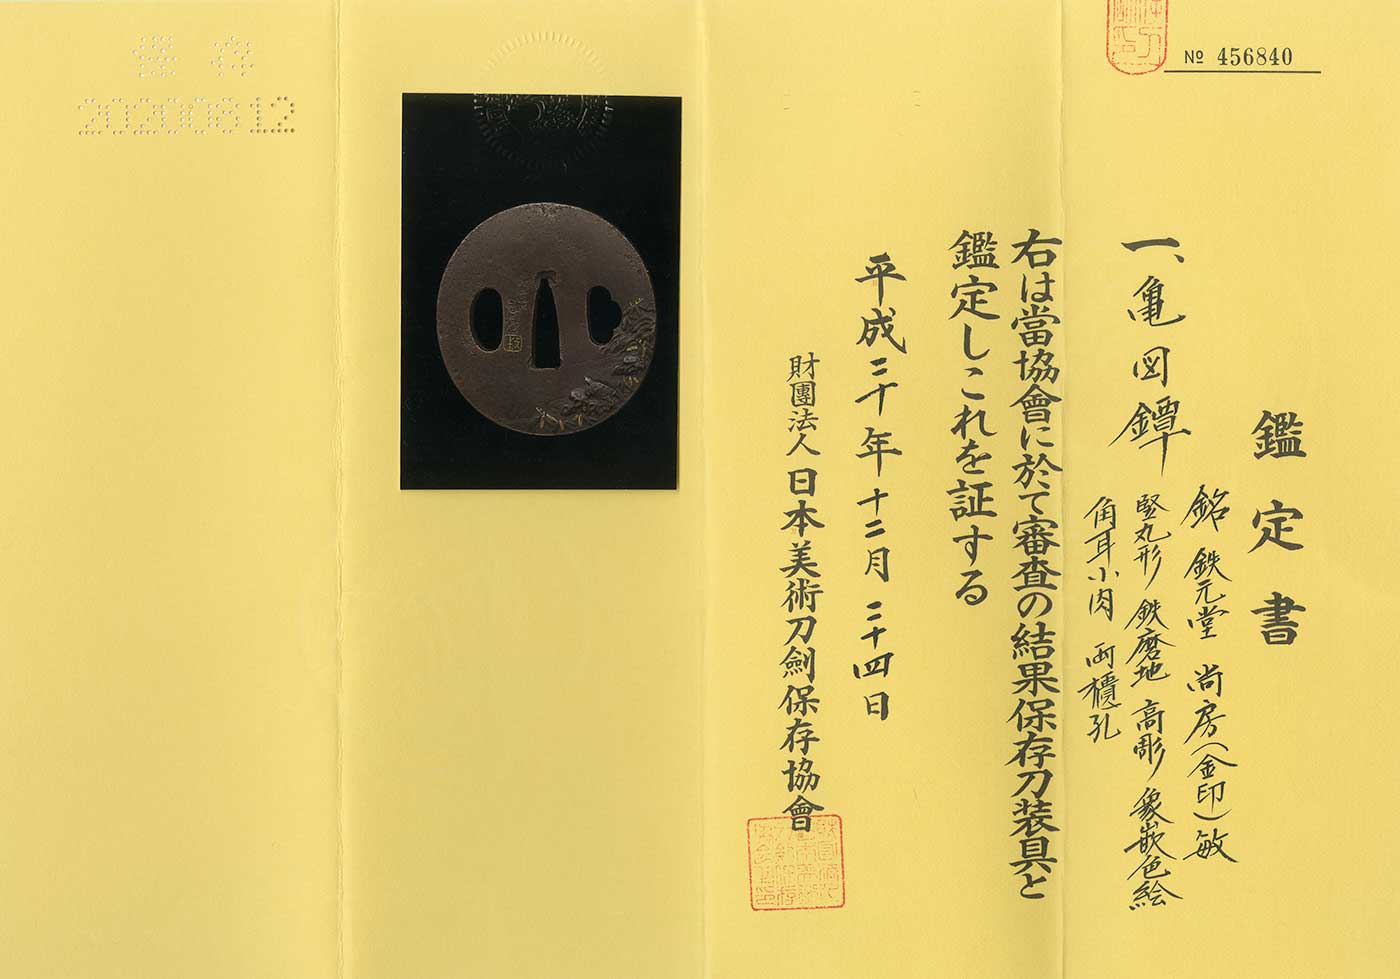 № 456840
鑑定書
一、亀図鐔
銘 鉄元堂 尚房(金印)敏
竪丸形 鉄磨地 高彫 象嵌色絵
角耳小肉 両櫃孔
右は當協會に於て審査の結果保存刀装具と
鑑定しこれを証する
平成二十年十二月二十四日
財團法人 日本美術刀劍保存協會
保存
20200812